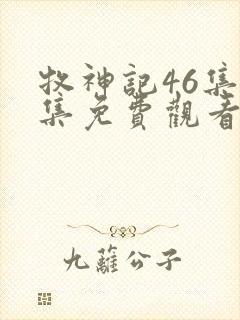 牧神記46集
集免費觀看
九蘿公子